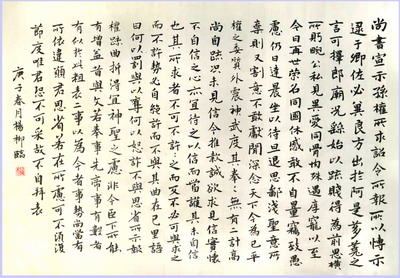 尚書宣示孫權所求詔令所報所以博示
逮于卿佐必冀良方出於阿是芻蕘之
言可擇郎廟況繇始以疏賤得為前恩橫
所盻睨公私見異愛同骨肉殊遇厚寵以至
今日再世榮名同國休慼敢不自量竊致愚
慮仍日達晨坐以待旦退思鄙淺聖意所
棄則又割意不敢獻聞深念天下今為已平
權之委質外震神武度其拳〻無有二計高
尚自疏況未見信今推款誠欲求見信實懷
不自信之心亦宜待之以信而當護其未自信
也其所求者不可不許許之而反不必可與求之
而不許勢必自絕許而不與其曲在己里語
曰何以罰與以奪何以怒許不與思省所示報
權疏曲折得宜神聖之慮非今臣下所能
有增益昔與文若奉事先帝事有數者
有似於此粗表二事以為今者事勢尚當有
所依違願君思省若在所慮可不須復
節度唯君恐不可采故不自拜表
庚子春月楊柳臨